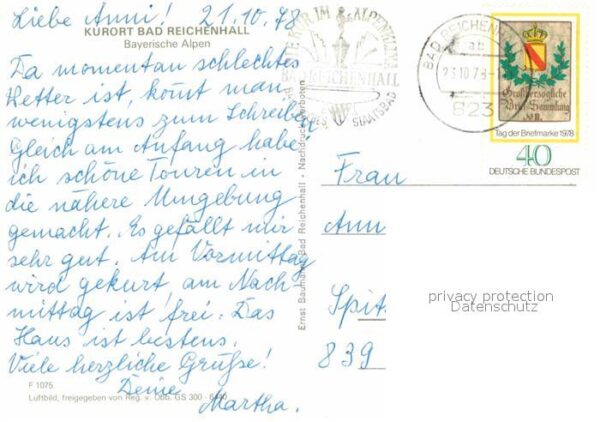 Liebe Anni! 21.10.78
KURORT BAD REICHENHALL
Bayerische Alpen
Da momentan schlechtes
Wetter ist, kommt man
wenigstens zum Schreiben.
Gleich am Anfang habe
ich schöne Touren in
die nähere Umgebung
gemacht. Es gefällt mir
sehr gut. Am Vormittag
wird gekurt, am Nach-
mittag ist frei. Das
Haus ist bestens.
Viele herzliche Grüße!
Deine
Martha.
F 1075
Luftbild, freigegeben von Reg. v. Obb. GS 300
Ernst Baumann Bad Reichenhall - Nachdruck verboten
KUR IM ALPENKLIMA
REICHENHALL
STAATSBAD
BAD REICHENHALL
ab
23.10.78
823
Großherzogliche
Brief-Sammlung
Tag der Briefmarke 1978
40
DEUTSCHE BUNDESPOST
Frau
Ann
Spit
839
privacy protection
Datenschutz